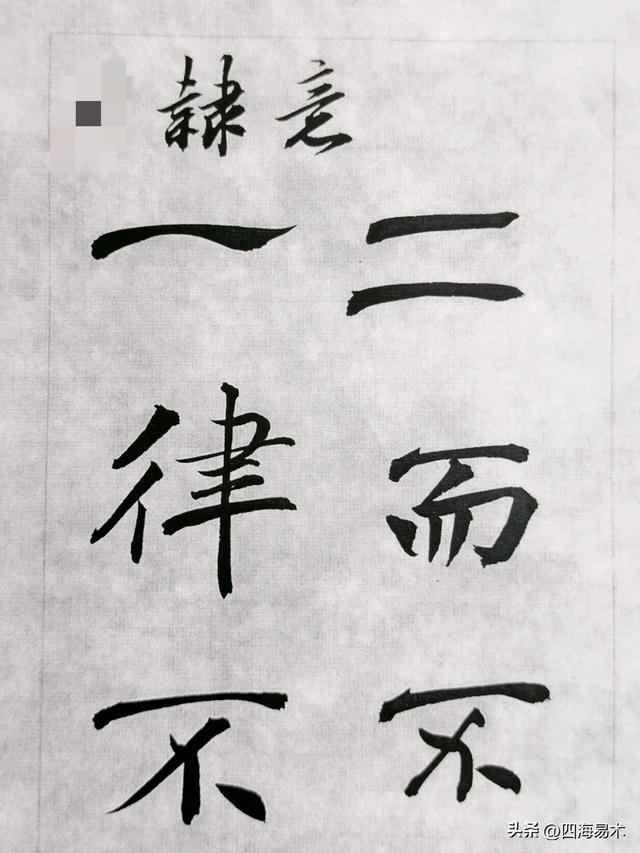 隸意
一二
律而
不不
头条 @四海易木